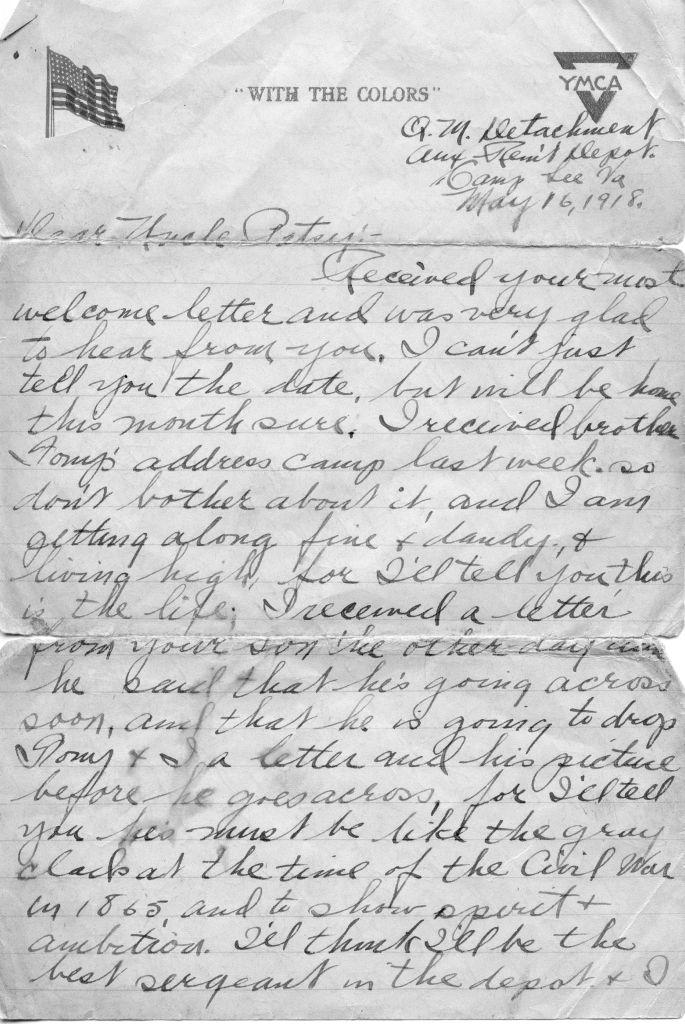 "WITH THE COLORS"
YMCA
Q. M. Detachment
Aux. Rem't Depot.
Camp Lee Va
May 16, 1918.
Dear Uncle Patsey:-
Received your most
welcome letter and was very glad
to hear from you. I can't just
tell you the date, but will be home
this month sure. I received brother
Tomy's address camp last week. so
don't bother about it, and I am
getting along fine & dandy, &
living high, for I'll tell you this
is the life; I received a letter
from your son the other day
he said that he's going across
soon, and that he is going to drop
Tomy & I a letter and his picture
before he goes across, for I'll tell
you he's must be like the gray
at the time of the Civil War
in 1865, and to show spirit &
ambition. I'll think I'll be the
best sergeant in the depot & I